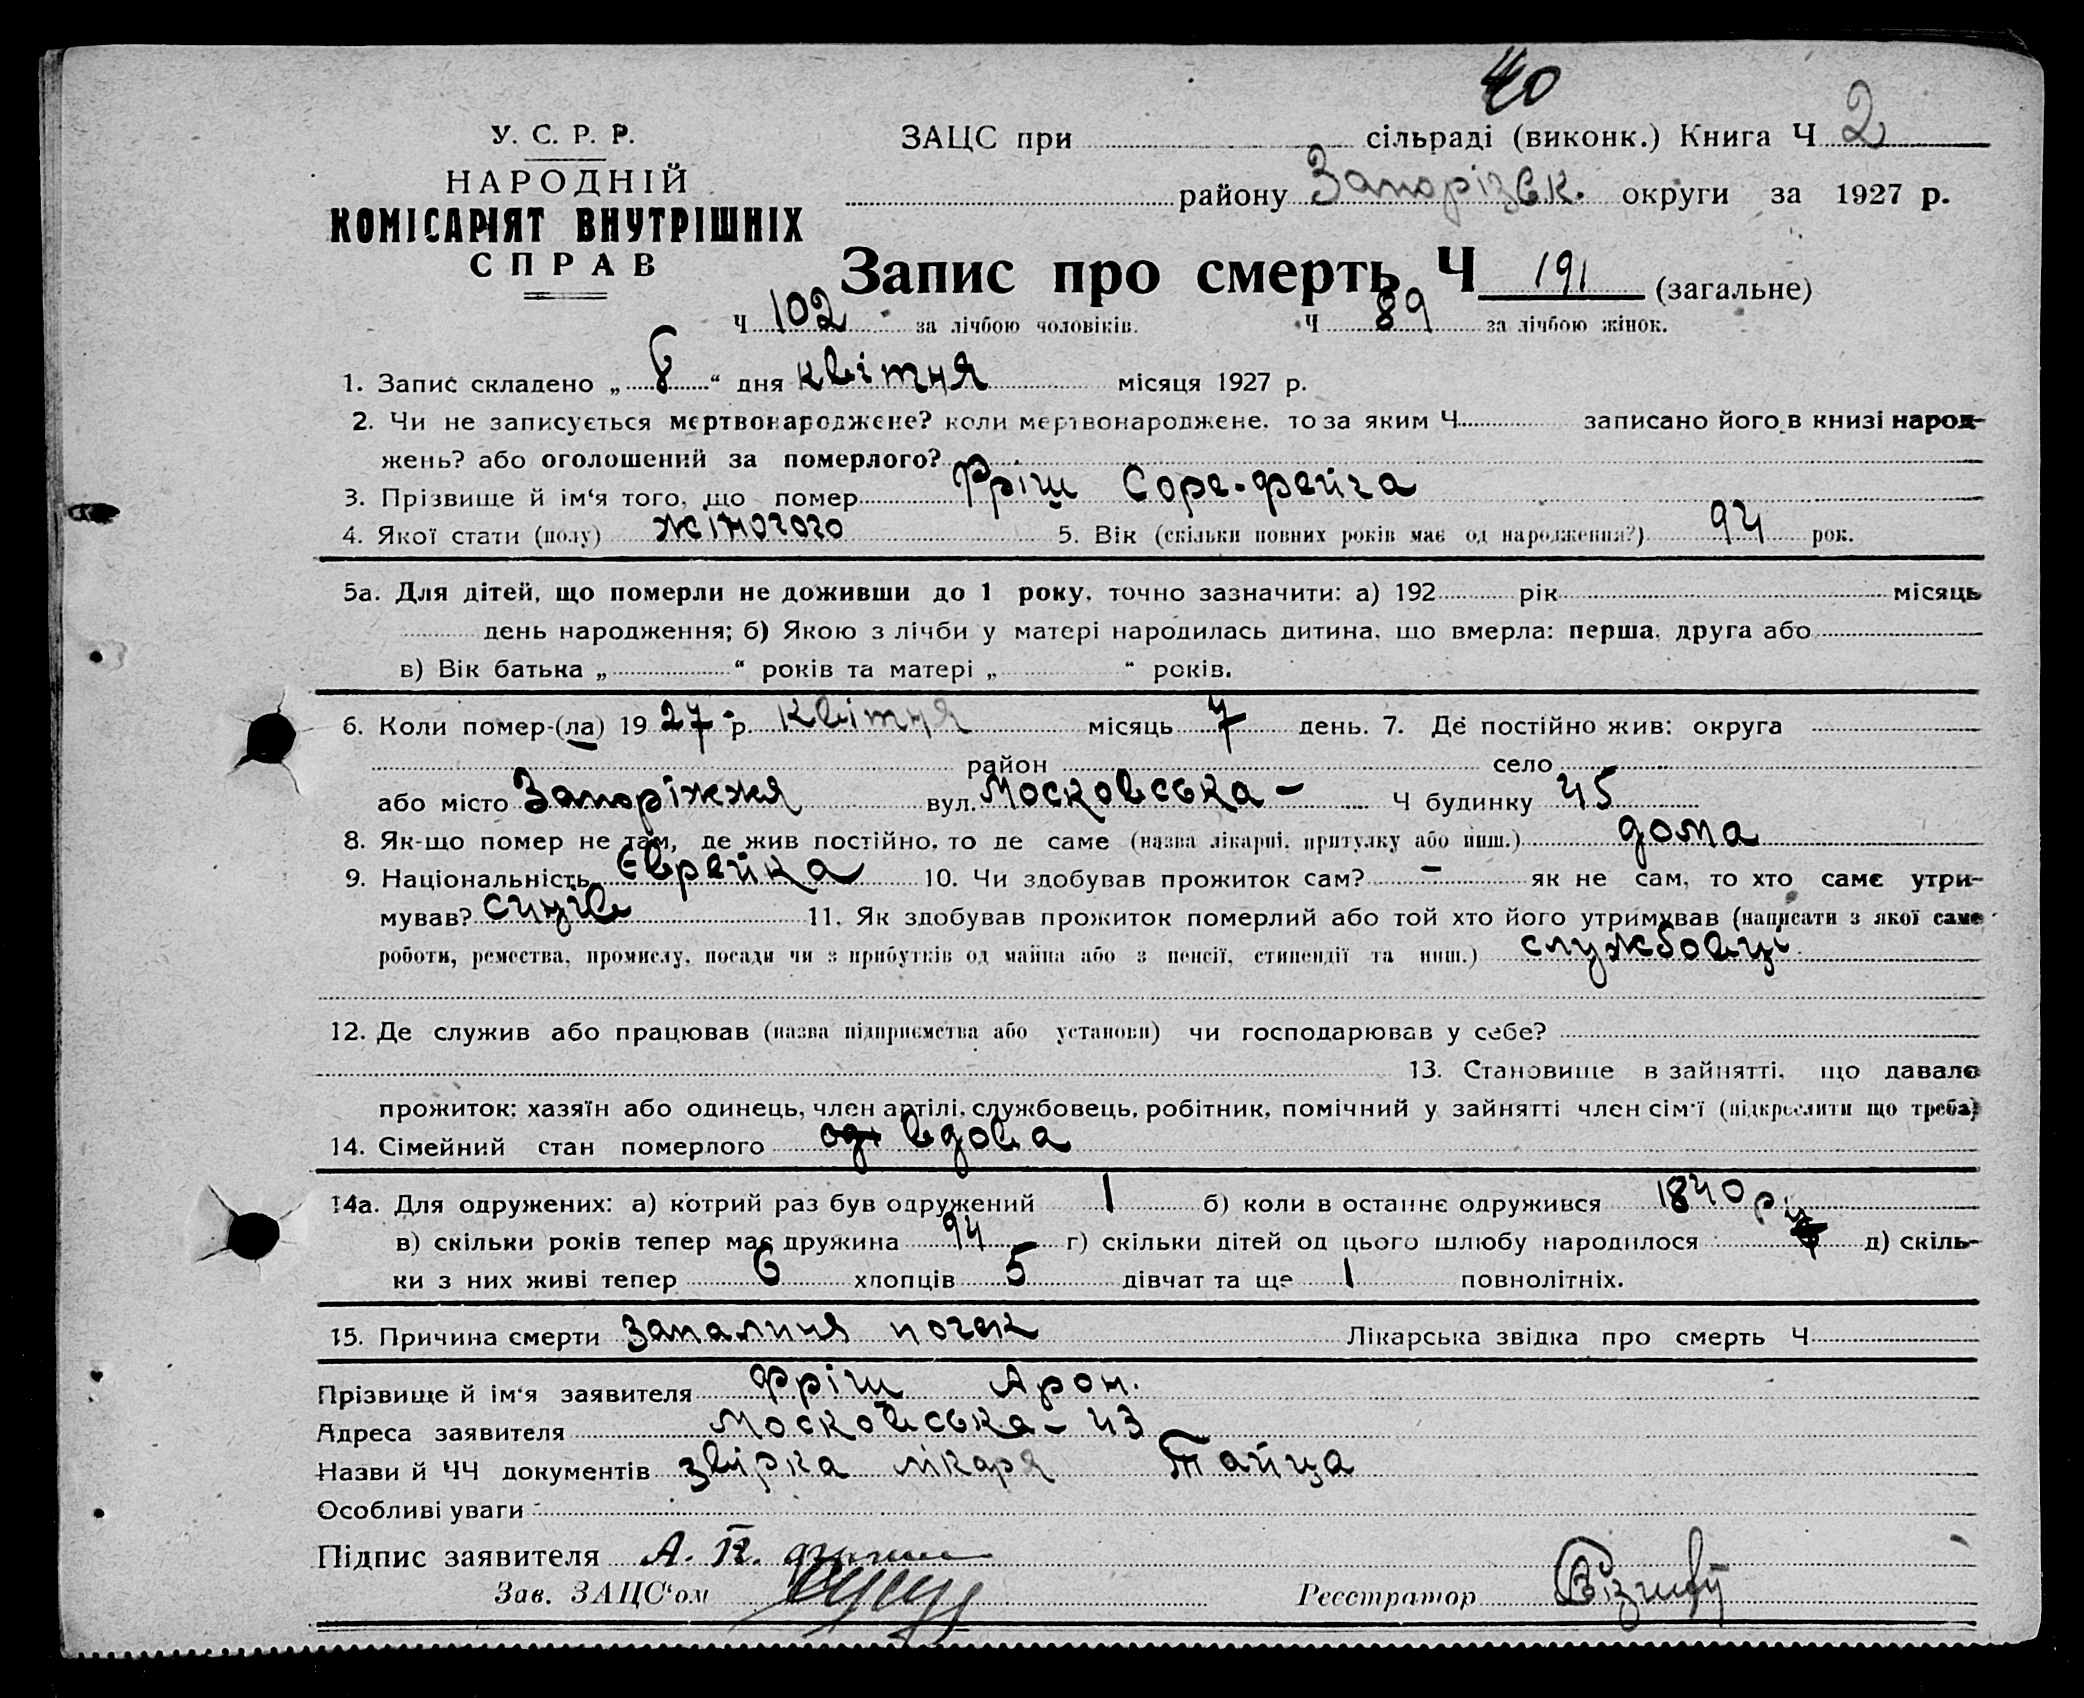 40
У. С. Р. Р.
НАРОДНІЙ
КОМІСАРІЯТ ВНУТРІШНІХ
СПРАВ
ЗАЦС при сільраді (виконк.) Книга Ч 2
району Запорізьк. округи за 1927 р.
Запис про смерть Ч 191 (загальне)
Ч 102 за лічбою чоловіків. Ч 89 за лічбою жінок.
1. Запис складено „ 8 “ дня квітня місяця 1927 р.
2. Чи не записується мертвонароджене? коли мертвонароджене, то за яким Ч записано його в книзі народ-
жень? або оголошений за померлого?
3. Прізвище й ім‘я того, що помер Фріш Соре-Фейга
4. Якої стати (полу) жіночого 5. Вік (скільки повних років має од народження?) 94 рок.
5а. Для дітей, що померли не доживши до 1 року, точно зазначити: а) 192 рік місяць
день народження; б) Якою з лічби у матері народилась дитина, що вмерла: перша, друга або
в) Вік батька „ “ років та матері „ “ років.
6. Коли помер-(ла) 1927 р. квітня місяць 7 день. 7. Де постійно жив: округа
район село
або місто Запоріжжя вул. Московська – Ч будинку 45
8. Як-що помер не там, де жив постійно, то де саме (назва лікарні, притулку або инш.) дома
9. Національність Єврейка 10. Чи здобував прожиток сам? – як не сам, то хто саме утри-
мував? синів 11. Як здобував прожиток померлий або той хто його утримував (написати з якої саме
роботи, ремества, промислу, посади чи з прибутків од майна або з пенсії, стипендії та инш.) службовці
12. Де служив або працював (назва підприємства або установи) чи господарював у себе?
13. Становище в зайнятті, що давало
прожиток: хазяїн або одинець, член артілі, службовець, робітник, помічний у зайнятті член сім‘ї (підкреслити що треба)
14. Сімейний стан померлого вдова
14а. Для одружених: а) котрий раз був одружений 1 б) коли в останнє одружився 1840 р
в) скільки років тепер має дружина 94 г) скільки дітей од цього шлюбу народилося д) скіль-
ки з них живі тепер 6 хлопців 5 дівчат та ще 1 повнолітніх.
15. Причина смерти запалиня почек Лікарська звідка про смерть Ч
Прізвище й ім‘я заявителя Фріш Арон.
Адреса заявителя Московська – 43
Назви й ЧЧ документів звірка лікаря Тайца
Особливі уваги
Підпис заявителя А. П.
Зав. ЗАЦС‘ом Реєстратор